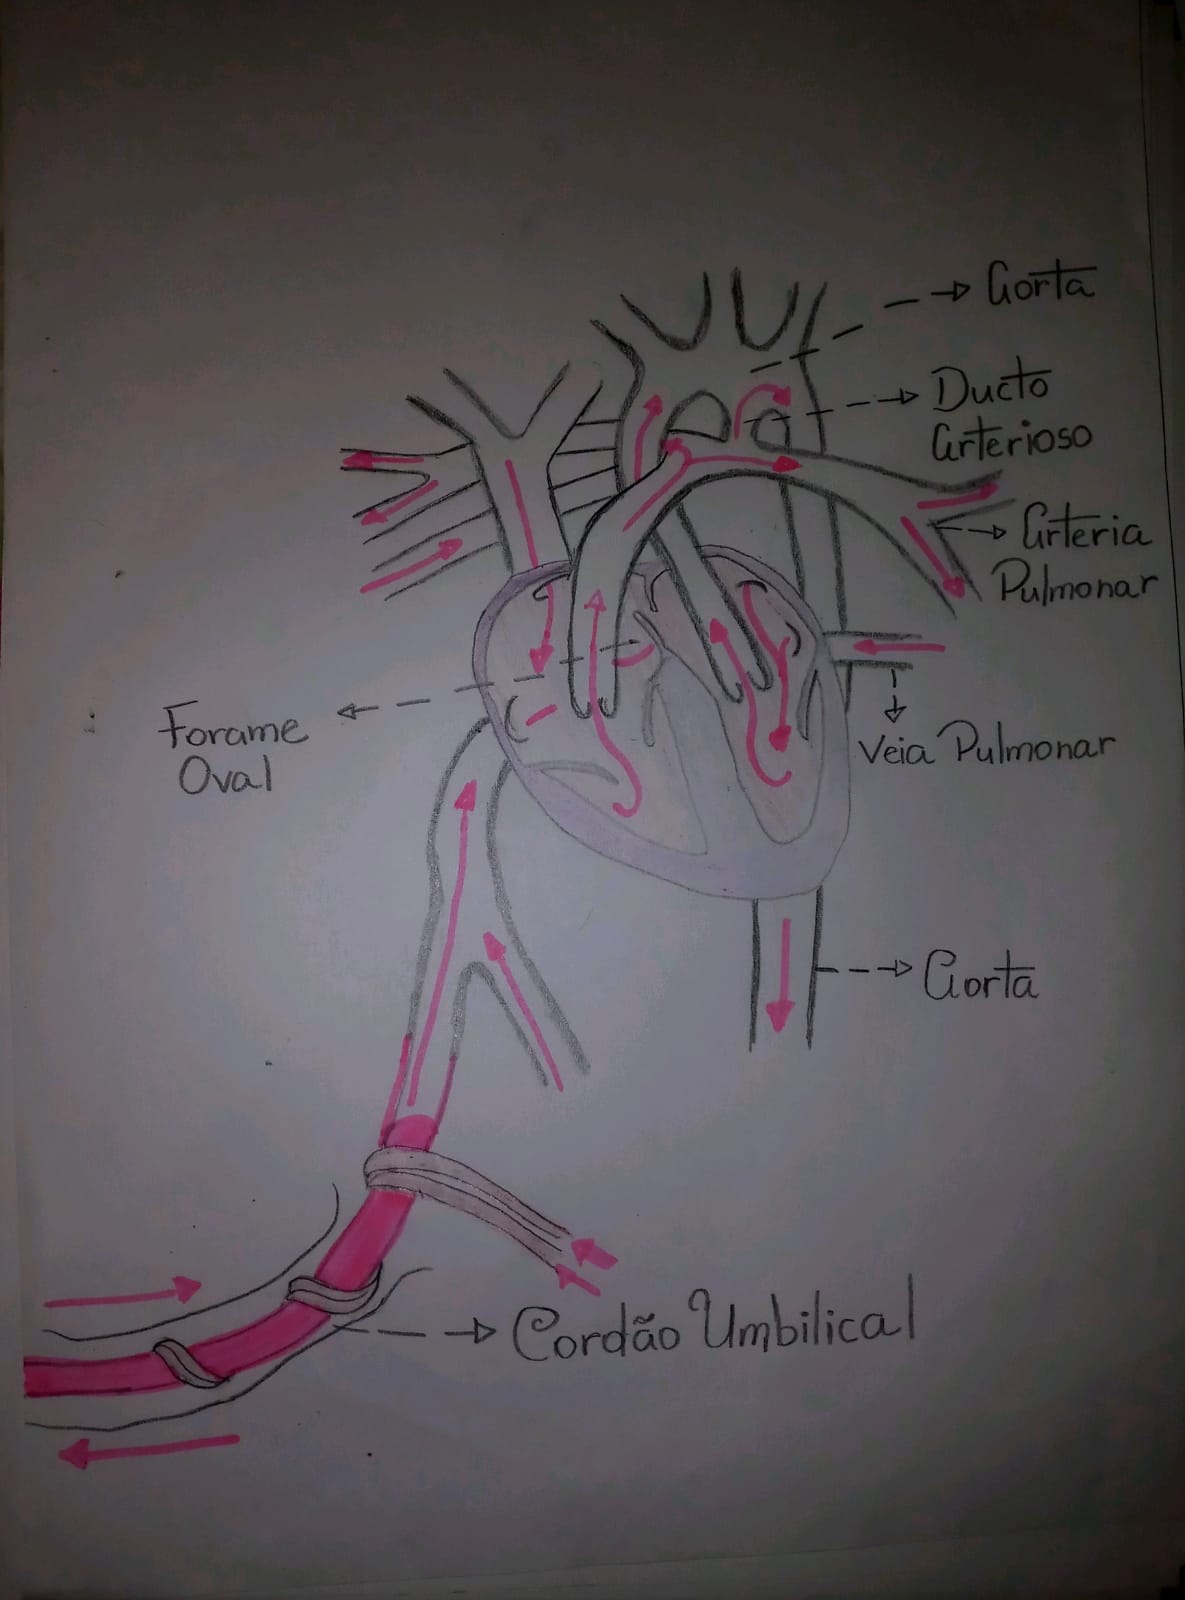 Aorta
Ducto
Arterioso
Arteria
Pulmonar
Forame
Oval
Veia Pulmonar
Aorta
Cordão Umbilical